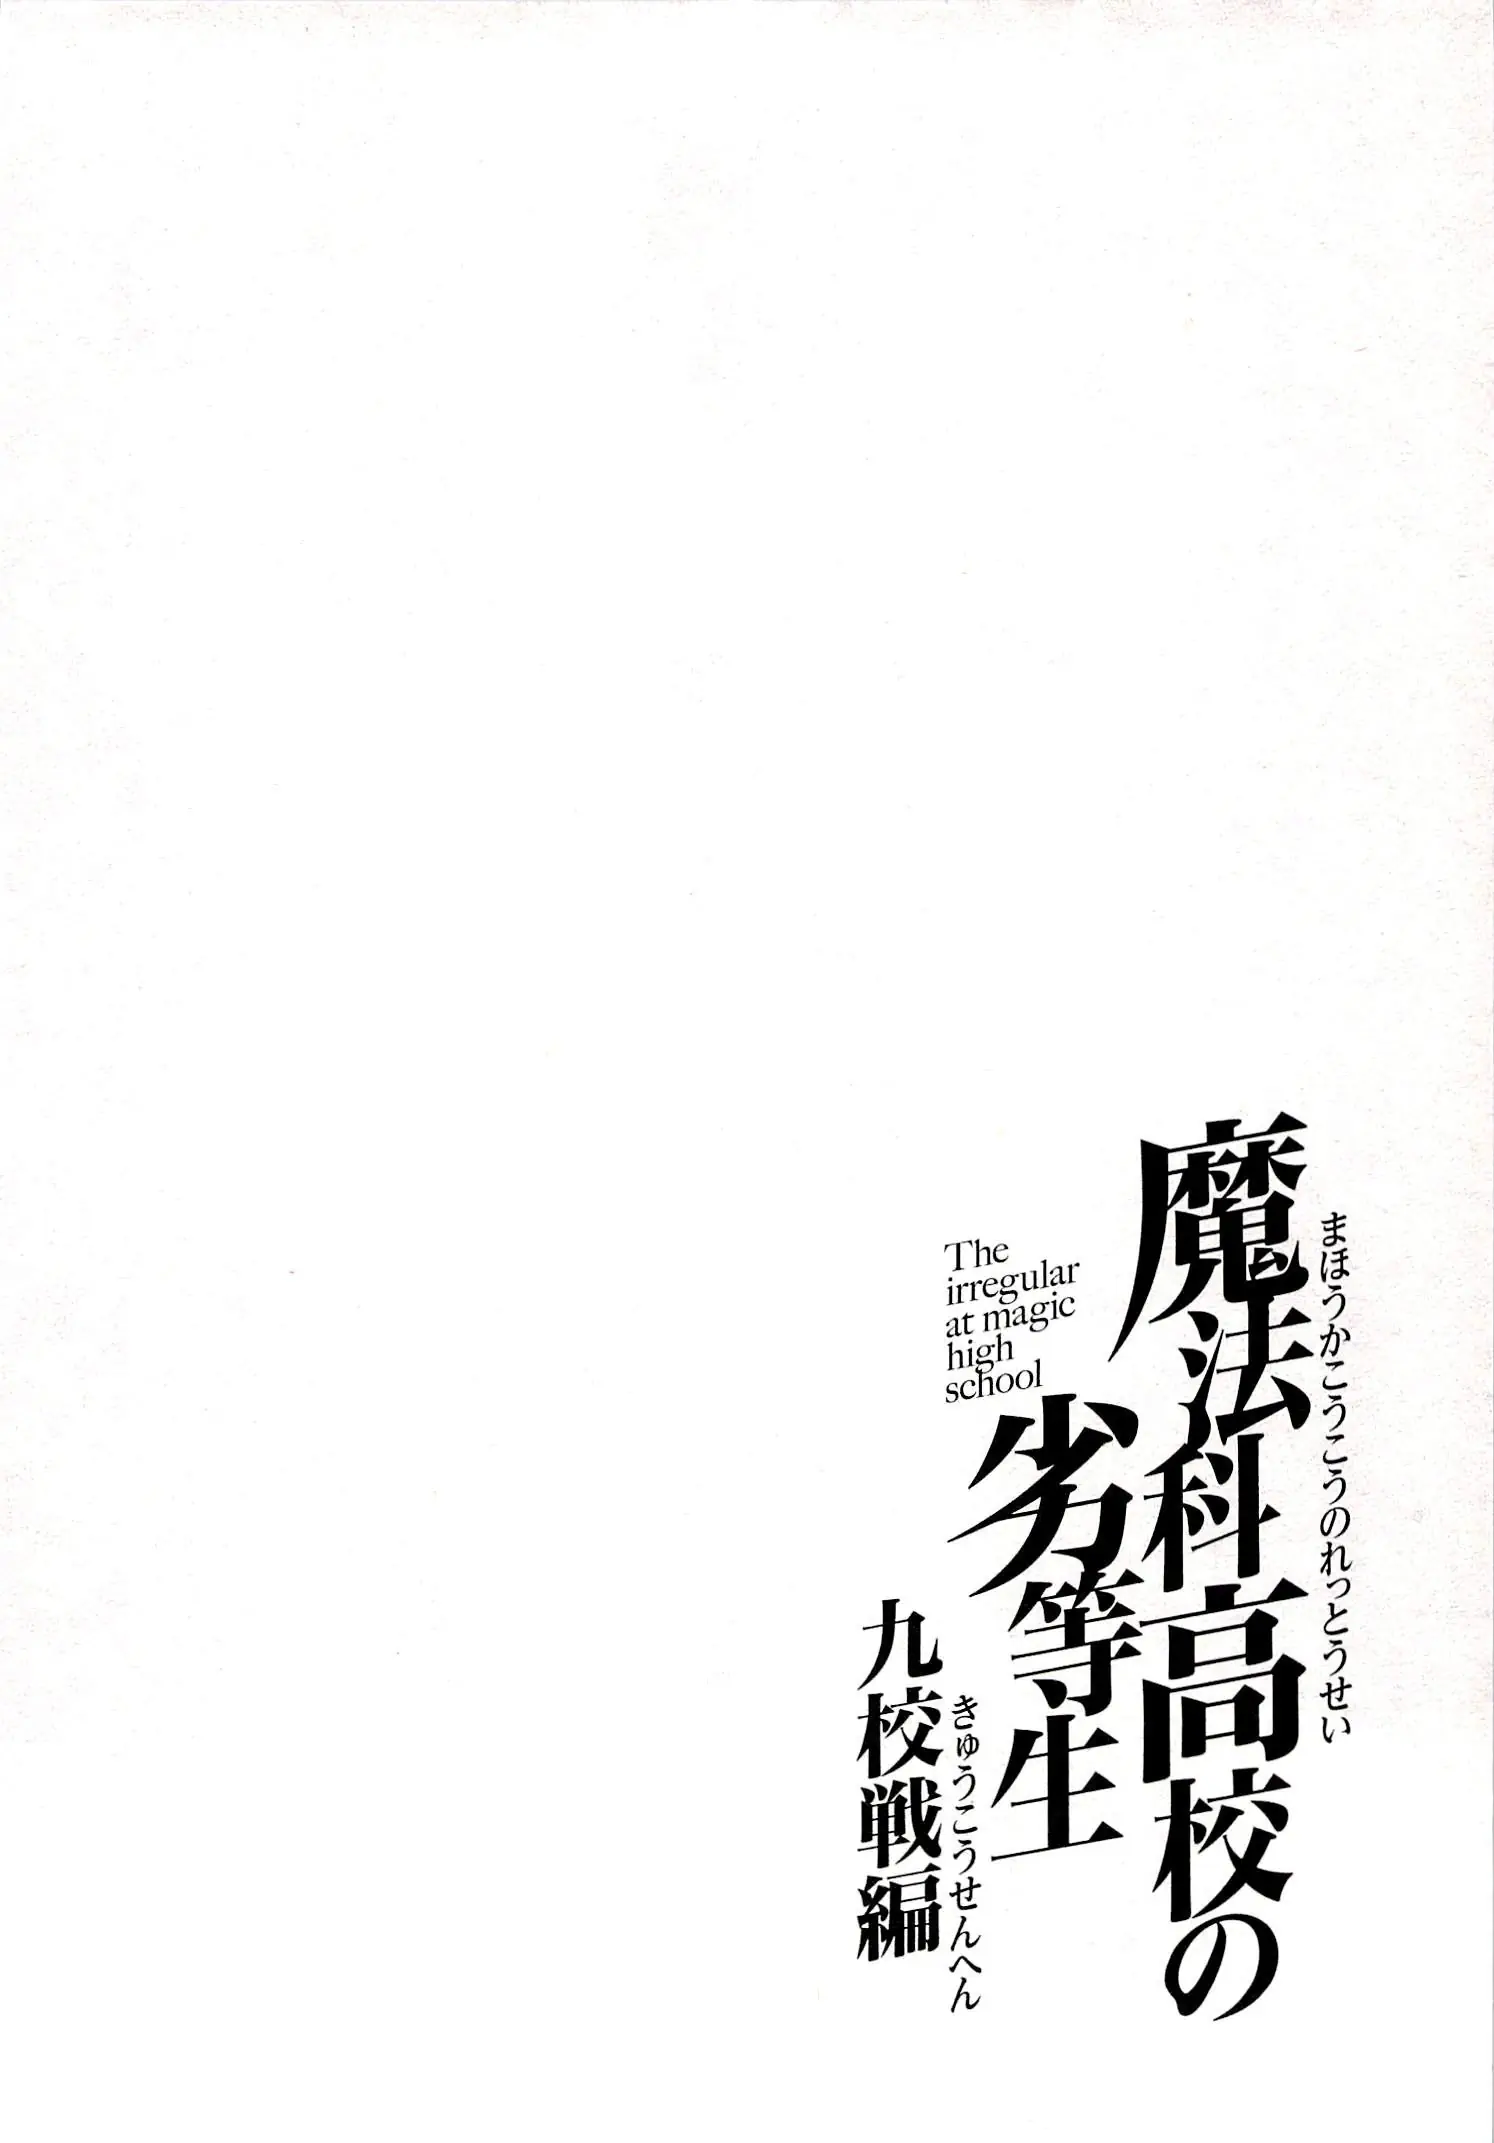 まほうかこうこうのれっとうせい
魔法科高校の
劣等生
The
irregular
at magic
high
school
きゅうこうせんへん
九校戦編